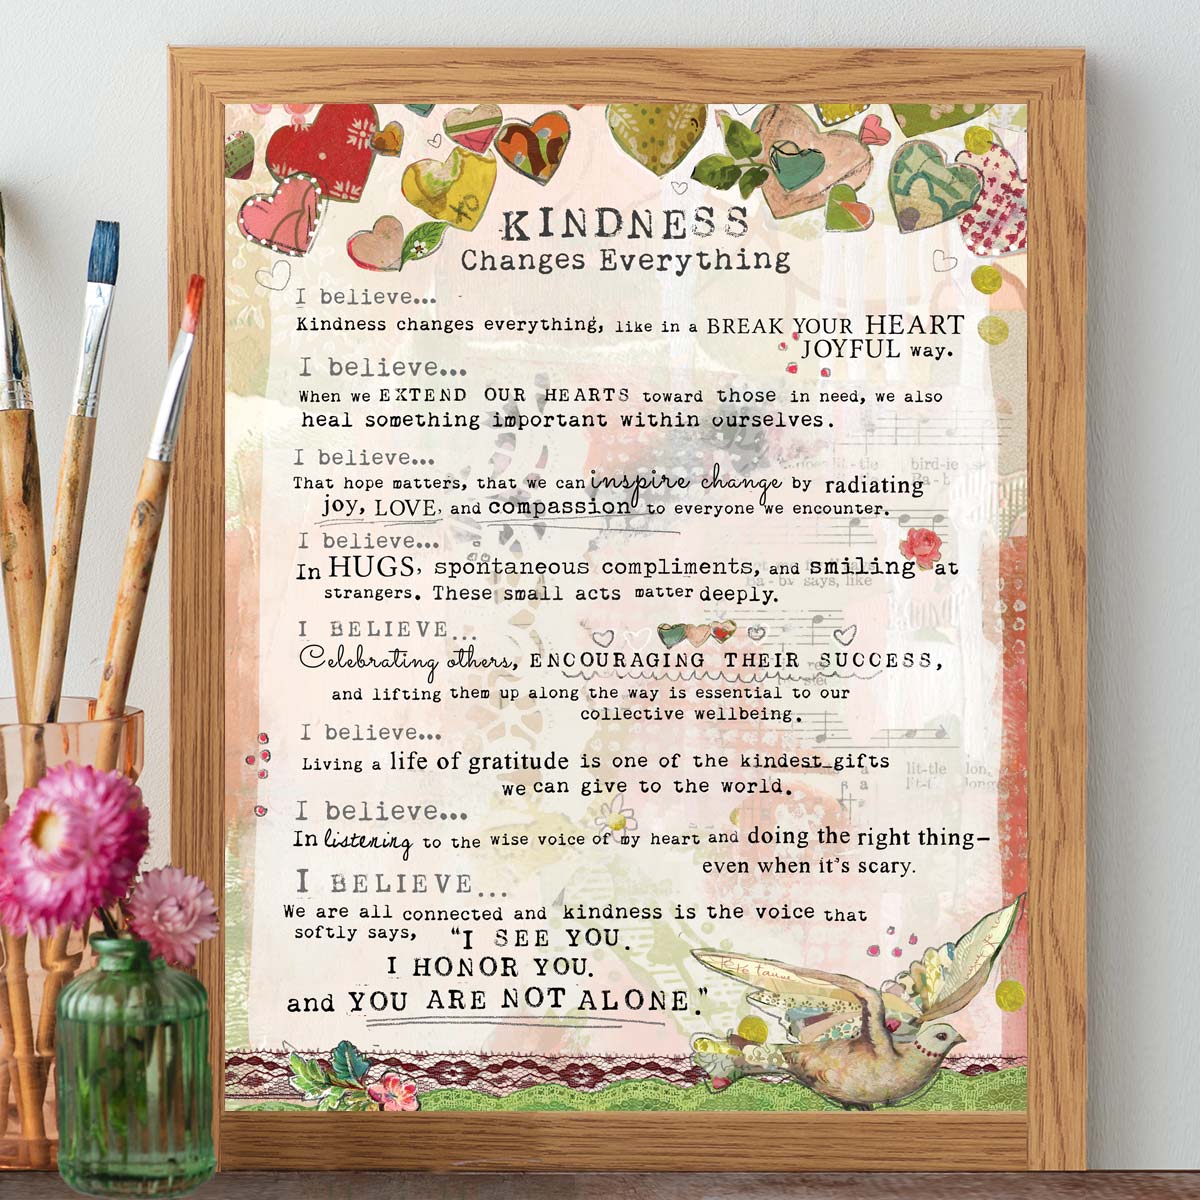 KINDNESS
Changes Everything
I believe...
Kindness changes everything, like in a BREAK YOUR HEART
JOYFUL way.
I believe...
When we EXTEND OUR HEARTS toward those in need, we also
heal something important within ourselves.
I believe...
That hope matters, that we can inspire change by radiating
joy, LOVE, and compassion to everyone we encounter.
I believe...
In HUGS, spontaneous compliments, and smiling at
strangers. These small acts matter deeply.
I BELIEVE...
Celebrating others, ENCOURAGING THEIR SUCCESS,
and lifting them up along the way is essential to our
collective wellbeing.
I believe...
Living a life of gratitude is one of the kindest gifts
we can give to the world.
I believe...
In listening to the wise voice of my heart and doing the right thing—
even when it's scary.
I BELIEVE...
We are all connected and kindness is the voice that
softly says, "I SEE YOU.
I HONOR YOU.
and YOU ARE NOT ALONE."